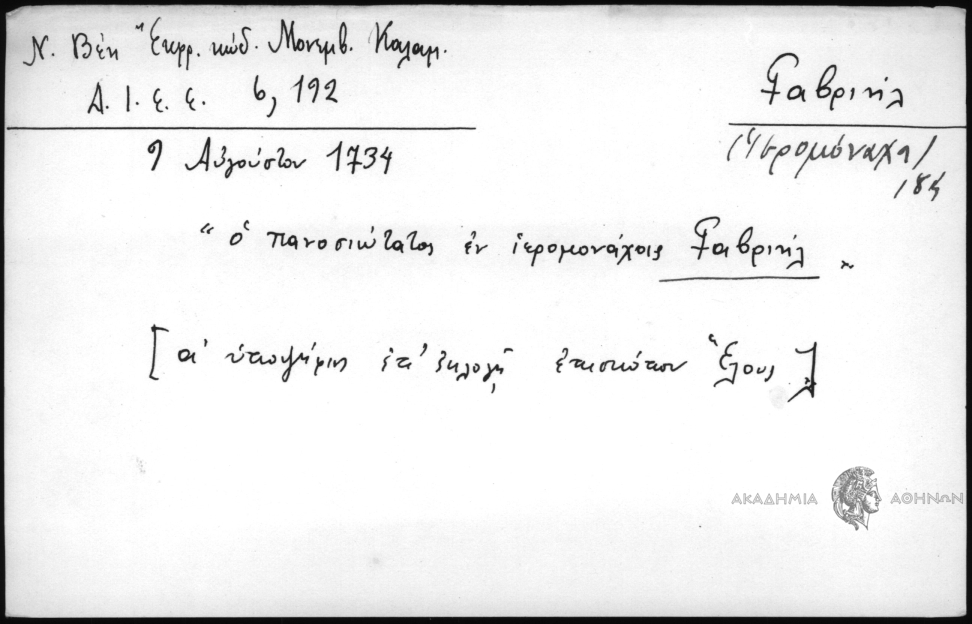 Ν. Βέη Ἐκφρ. κώδ. Μονεμβ. Καλαμ.
Δ. Ι. Ε. Ε. 6, 192
Γαβριήλ
(Ἱερομόναχος)
9 Αὐγούστου 1734
“ ὁ πανοσιώτατος ἐν ἱερομονάχοις Γαβριήλ „
[ α' ὑποψήφιος ἐπ' ἐκλογῇ ἐπισκόπου Ἕλους ]
ΑΚΑΔΗΜΙΑ ΑΘΗΝΩΝ